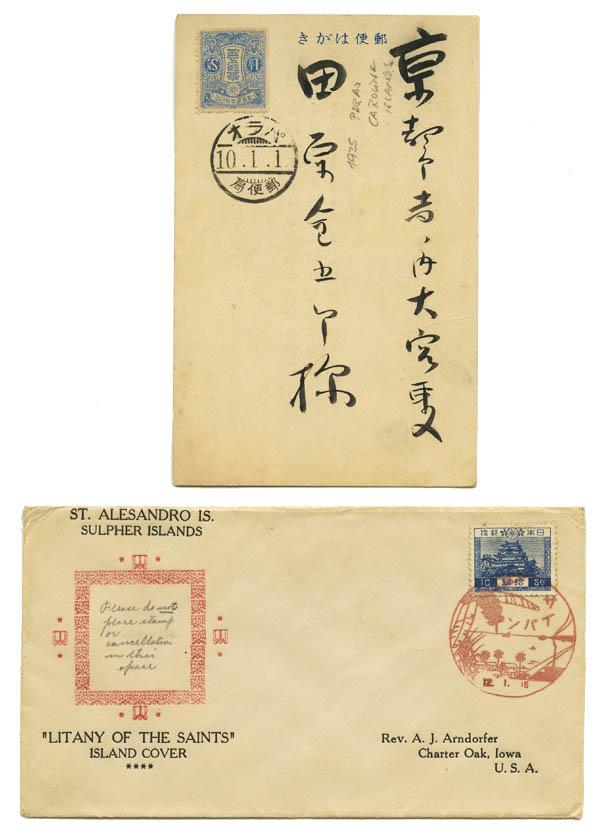 郵便はがき
パラオ
10.1.1
郵便局
京都
大宮
田
様
CAROLINE
ISLANDS
1935
ST. ALESANDRO IS.
SULPHER ISLANDS
Please do not
place stamp
or
cancellation
in this
space
"LITANY OF THE SAINTS"
ISLAND COVER
****
10 拾銭 Sn
サイパン
12.1.16
Rev. A. J. Arndorfer
Charter Oak, Iowa
U. S. A.